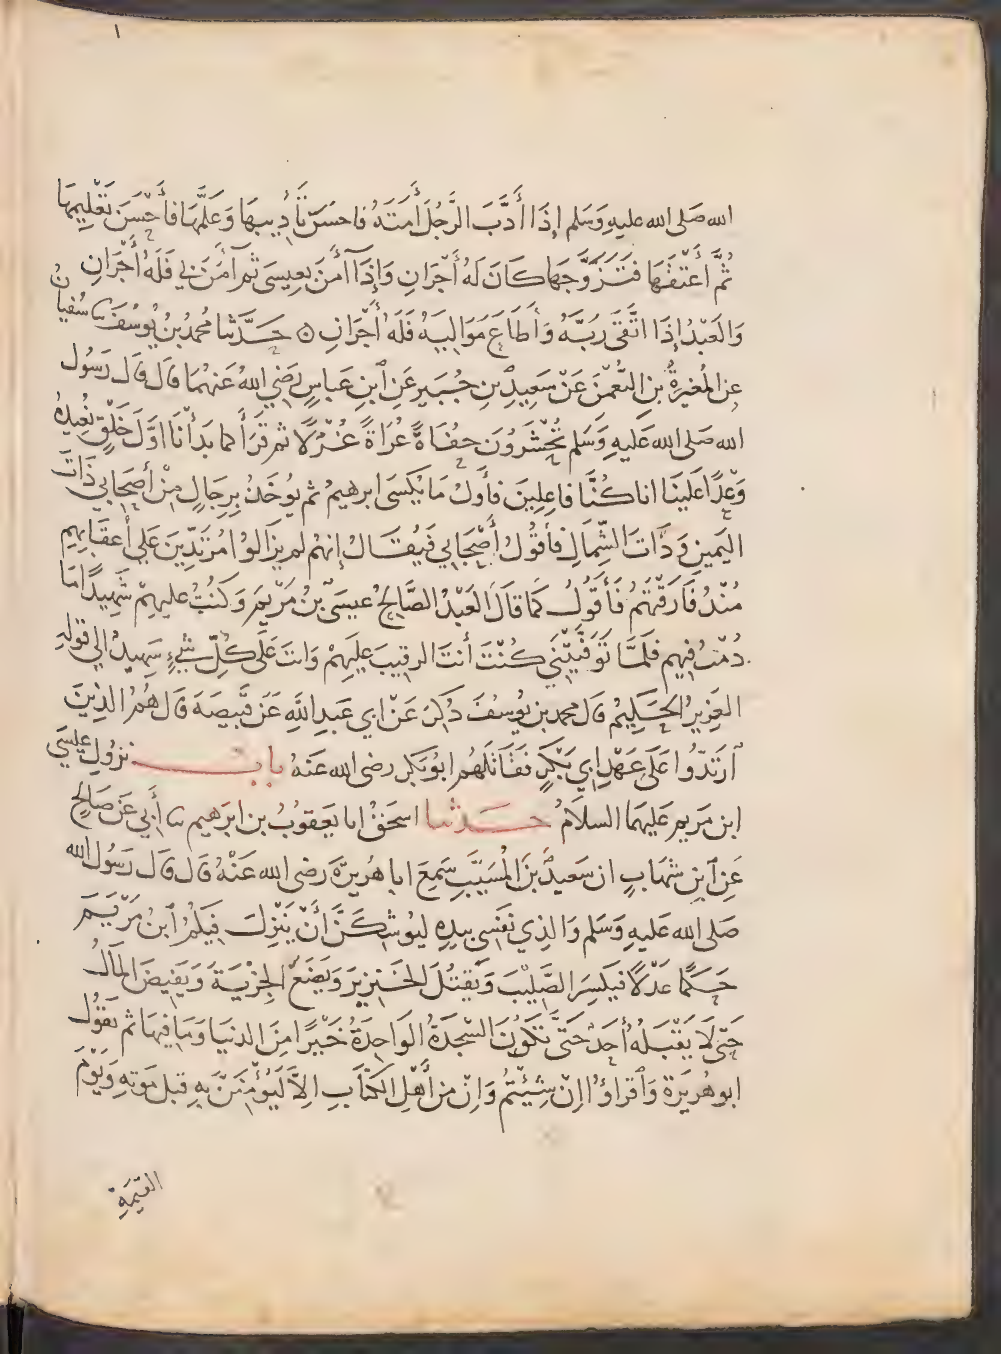 ١
الله صلى الله عليه وسلم إذَا أدَّبَ الرَّجُلُ أَمَتَهُ فاحسَنَ تَأدِيبهَا وَعَلَّمَهَا فأحْسَنَ تَعْلِيمَهَا
ثُمَّ أَعْتَقَهَا فَتَزَوَّجَهَا كَانَ لَهُ أَجْرَانِ وَإِذَا آمَنَ بِعِيسَى ثم آمَنَ بي فَلَهُ أَجْرَانِ
وَالعَبْدُ إِذَا اتَّقَى رَبَّهُ وَأطَاعَ مَوَالِيَهُ فَلَهُ أَجْرَانِ ۝ حَدَّثنا محمد بنُ يُوسُفَ ثنا سُفيانُ
عنِ المُغيرةِ بنِ النُّعْمٰنِ عَنْ سَعِيدِ بنِ جُبَيرٍ عَنِ ابنِ عَباسٍ رَضي اللهُ عَنهُمَا قَالَ قَالَ رَسُول
الله صَلى الله عَليهِ وَسَلم تُحْشَرُونَ حفَاةً عُرَاةً غُرْلًا ثم قَرَأَ كما بَدَأْنَا اوَّلَ خَلْقٍ نُعِيدُهُ
وَعْدًا عَلَينَا انا كُنَّا فاعِلِينَ فأوَلُ مَا يُكْسَى ابرهيمُ ثم يُوخَذُ بِرِجَالٍ مِنْ أصحَابي ذَاتَ
اليَمينِ وَذَاتَ الشِّمَالِ فأقُولُ أصْحَابي فَيُقَالُ إنهُمْ لم يزَالُوا مُرتَدِّينَ عَلى أعقَابِهِم
مُنْذُ فَارَقْتَهُمْ فَأَقُولُ كَمَا قَالَ العَبْدُ الصَّالِحُ عيسَى بنُ مَرْيَمَ وَكنْتُ عليهِمْ شَهِيدًا مَا
دُمْتُ فِيهِم فَلَمَّا تَوَفَّيْتَنِي كُنْتَ أنتَ الرقيبَ عَلَيهِمْ وَانتَ عَلَى كُلِّ شَيءٍ شهِيدٌ الى قولِهِ
العَزِيزُ الحَكِيمُ قَالَ محمد بن يُوسُفَ ذُكِرَ عَنْ ابي عَبدِ اللهِ عَن قَبيصَةَ قَالَ هُمُ الذِينَ
ارتَدُّوا عَلَى عَهْدِ ابي بَكْرٍ فَقَاتَلَهُم ابُو بَكر رضى الله عَنهُ باب نزولِ عيسَى
ابن مَريم عَليهِمَا السلامُ حدثنا اسحقُ انا يَعقوبُ بن ابرَهيم ثنا أَبي عَن صَالحٍ
عَنِ ابنِ شهَابٍ ان سَعيدَ بنَ المُسَيَّبِ سَمِعَ ابا هُرَيرَةَ رَضى الله عَنْهُ قَالَ قَالَ رَسُول الله
صَلى الله عليهِ وَسَلم وَالذِي نَفسِي بيدِهِ ليُوشكَنَّ أنْ يَنْزِلَ فيكُمُ ابنُ مَرْيَمَ
حَكَمًا عَدْلًا فيَكسِرَ الصَّلِيْبَ وَيَقتُلَ الخنزيرَ وَيَضَعَ الجزْيَةَ وَيَفيضَ المَالُ
حَتَّى لَا يَقْبَلَهُ أَحَدٌ حَتَّى تَكُونَ السَّجدَةُ الوَاحِدَةُ خَيْرًا مِنَ الدنيَا وَمَا فيهَا ثم يَقُولُ
ابو هُرَيرَة وَاقراؤُا إنْ شِئتُم وَانْ من أَهْلِ الكتَابِ الاَّ لَيُؤمِنَنَّ بِهِ قبلَ مَوتِهِ وَيَوْمَ
القيٰمَةِ